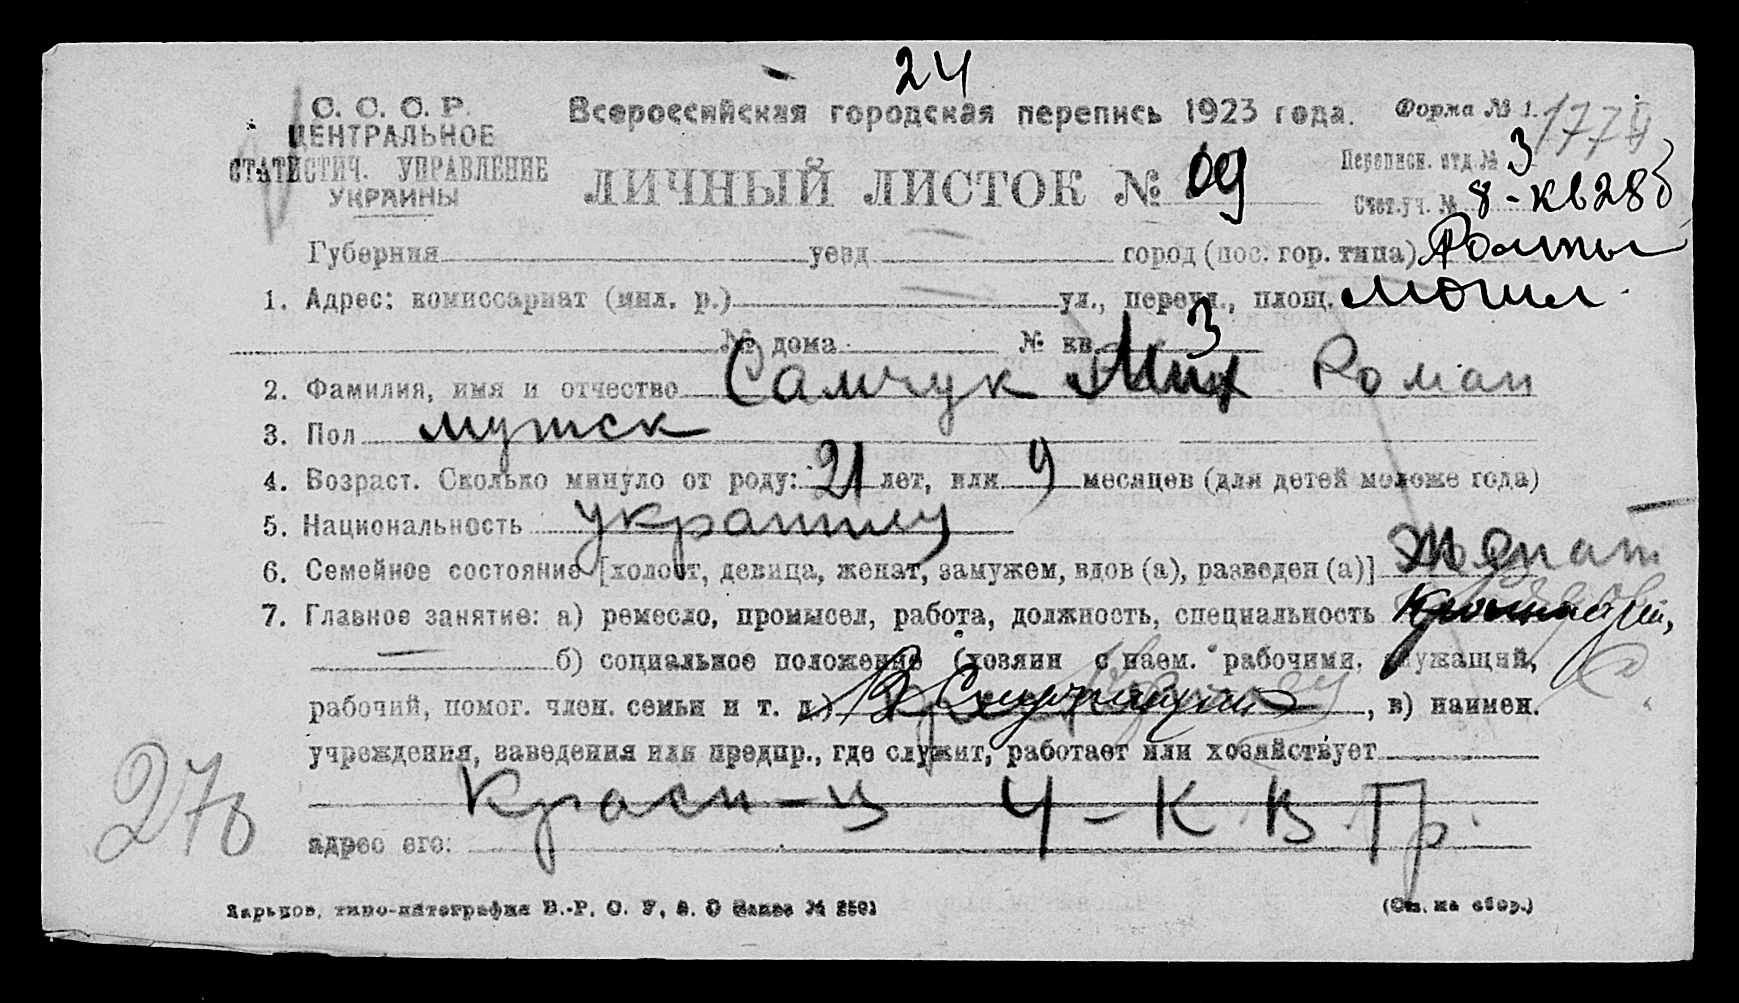 24
С. С. С. Р.
ЦЕНТРАЛЬНОЕ
СТАТИСТИЧ. УПРАВЛЕНИЕ
УКРАИНЫ
Всероссийская городская перепись 1923 года.
Форма № 1. 177
ЛИЧНЫЙ ЛИСТОК № 09
Переписн. отд. № 3
Счет. уч. № 8-кв28б
Губерния уезд город (пос. гор. типа)
1. Адрес: комиссариат (мил. р.) ул., переул., площ.
№ дома № кв. 3
2. Фамилия, имя и отчество Самчук Мих Роман
3. Пол мужск
4. Возраст. Сколько минуло от роду: 21 лет, или 9 месяцев (для детей моложе года)
5. Национальность украинец
6. Семейное состояние [холост, девица, женат, замужем, вдов (а), разведен (а)] Женат
7. Главное занятие: а) ремесло, промысел, работа, должность, специальность
— б) социальное положение (хозяин с наем. рабочими, служащий,
рабочий, помог. член. семьи и т. д.) , в) наимен.
учреждения, заведения или предпр., где служит, работает или хозяйствует
Красн-ц 4-К.В.Гр.
адрес его:
27б
Харьков, типо-литография В.-Р. О. У, Заказ №
(См. на обор.)